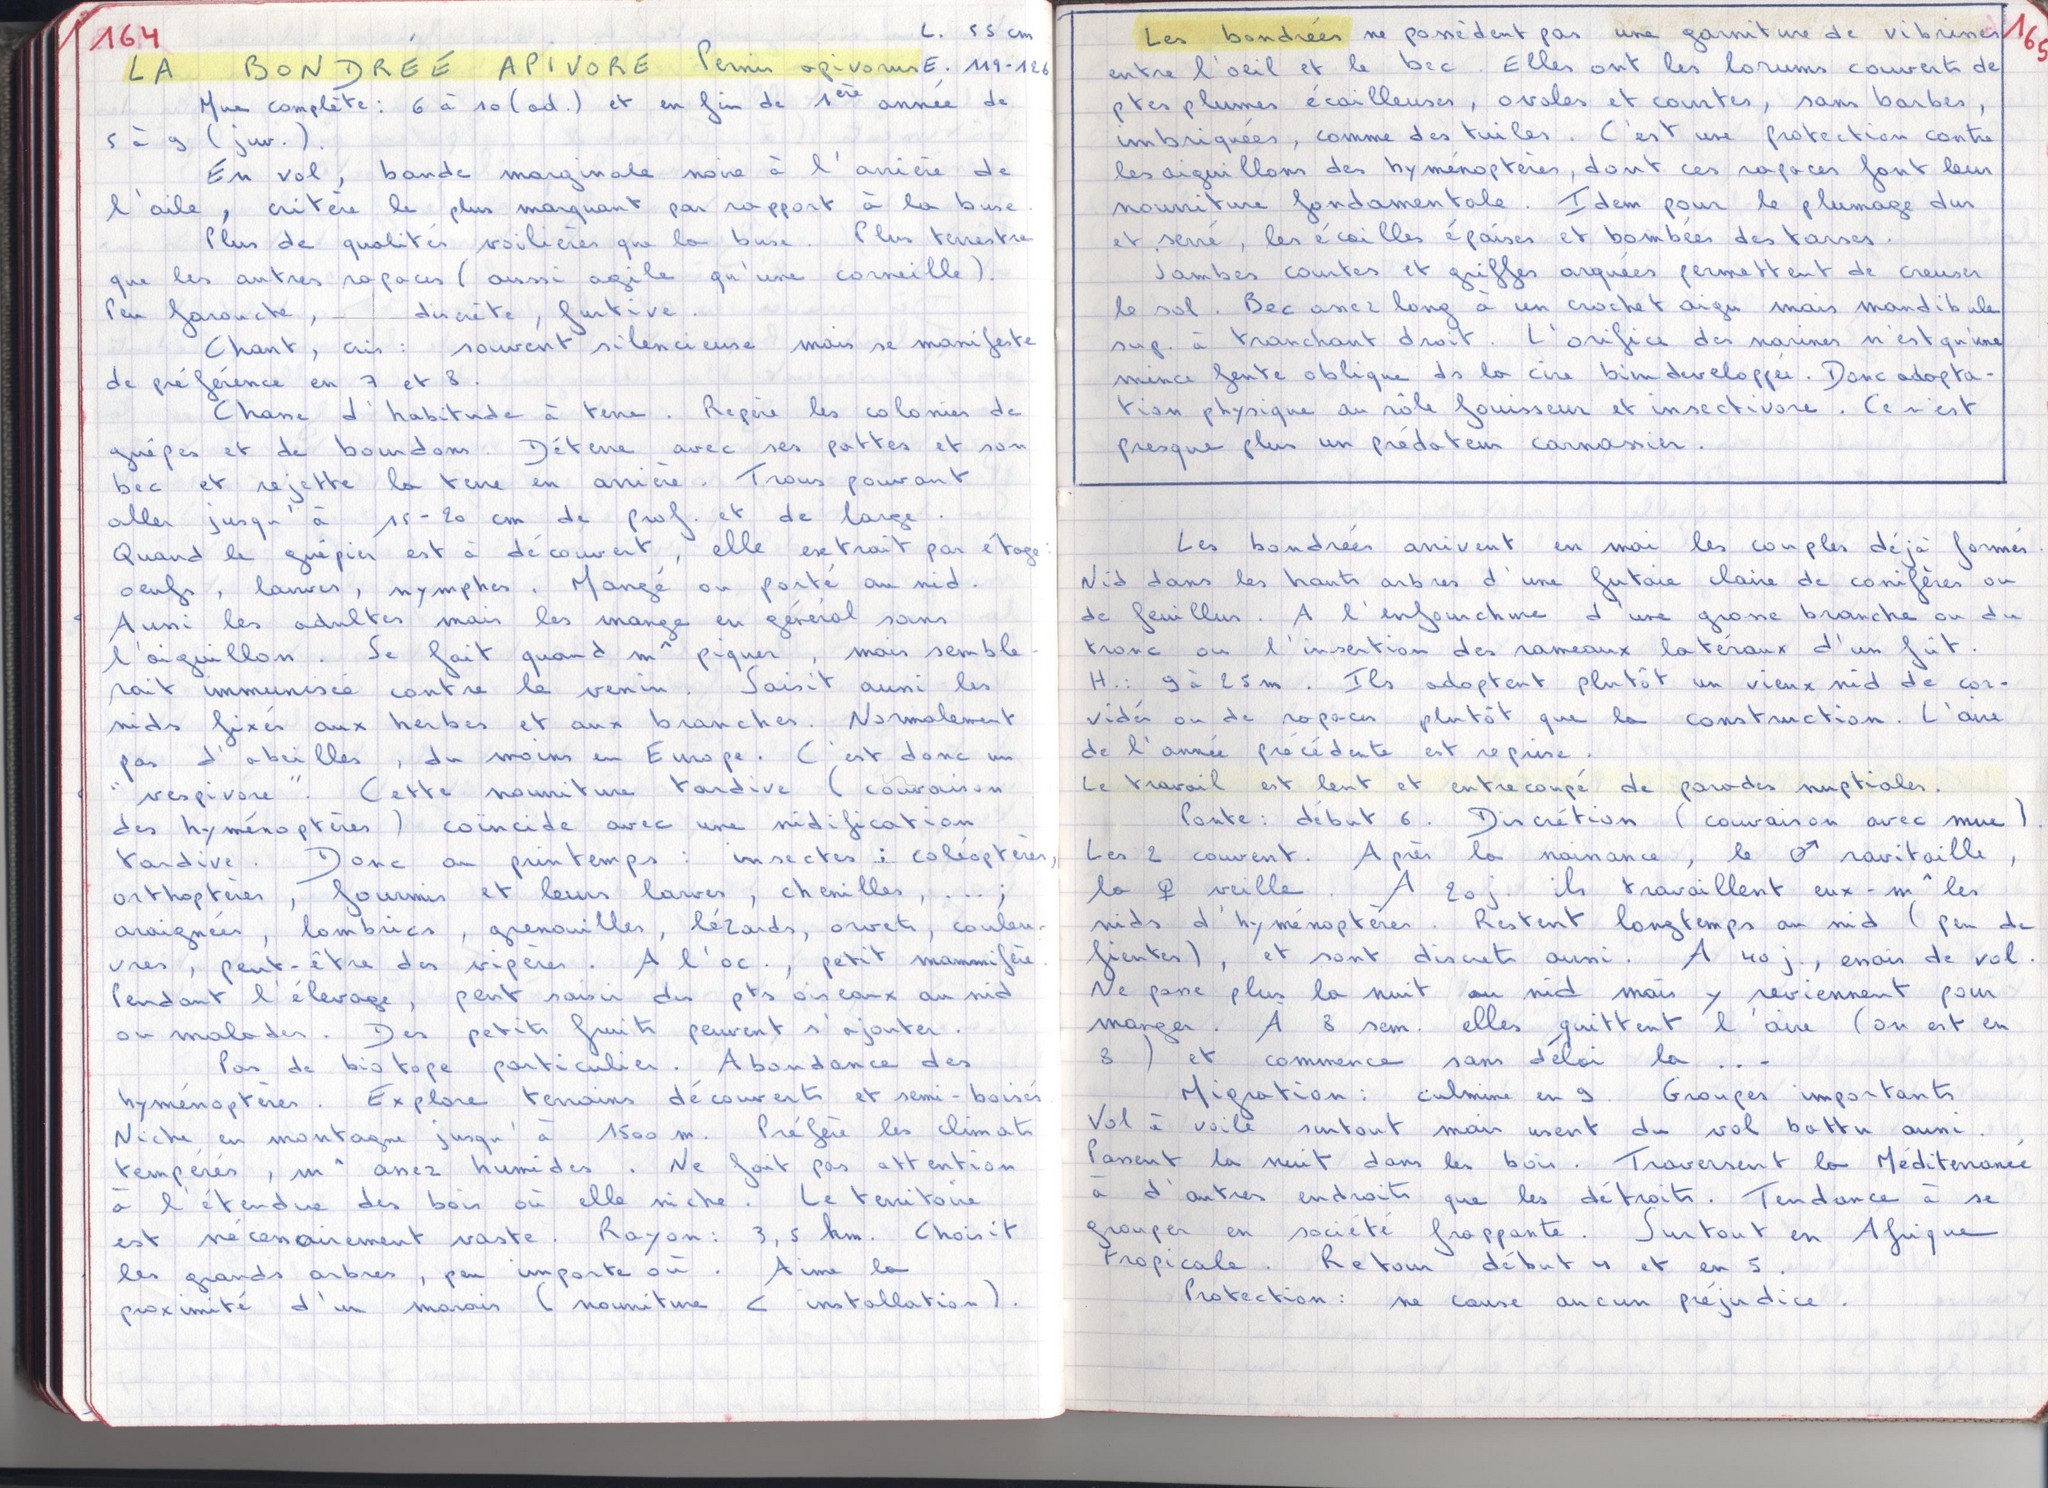 164
L. 55 cm
LA BONDRÉE APIVORE Pernis apivorus E. 119-126
Mue complète : 6 à 10 (ad.) et en fin de 1ère année de
5 à 9 (juv.).
En vol, bande marginale noire à l'arrière de
l'aile, critère le plus marquant par rapport à la buse.
Plus de qualités voilières que la buse. Plus terrestre
que les autres rapaces (aussi agile qu'une corneille).
Peu farouche, discrète, furtive.
Chant, cris : souvent silencieuse mais se manifeste
de préférence en 7 et 8.
Chasse d'habitude à terre. Repère les colonies de
guêpes et de bourdons. Déterre avec ses pattes et son
bec et rejette la terre en arrière. Trous pouvant
aller jusqu'à 15-20 cm de prof. et de large.
Quand le guêpier est à découvert, elle extrait par étage :
oeufs, larves, nymphes. Mangé ou porté au nid.
Aussi les adultes mais les mange en général sans
l'aiguillon. Se fait quand m^ piquer, mais semble-
rait immunisée contre le venin. Saisit aussi les
nids fixés aux herbes et aux branches. Normalement
pas d'abeilles, du moins en Europe. C'est donc un
"vespivore". Cette nourriture tardive (couvaison
des hyménoptères) coïncide avec une nidification
tardive. Donc au printemps : insectes : coléoptères,
orthoptères, fourmis et leurs larves, chenilles, ... ;
araignées, lombrics, grenouilles, lézards, orvets, couleu-
vres, peut-être des vipères. A l'oc., petit mammifère.
Pendant l'élevage, peut saisir des pts oiseaux au nid
ou malades. Des petits fruits peuvent s'ajouter.
Pas de biotope particulier. Abondance des
hyménoptères. Explore terrains découverts et semi-boisés.
Niche en montagne jusqu'à 1500 m. Préfère les climats
tempérés, m^ assez humides. Ne fait pas attention
à l'étendue des bois où elle niche. Le territoire
est nécessairement vaste. Rayon : 3,5 km. Choisit
les grands arbres, peu importe où. Aime la
proximité d'un marais (nourriture < installation).
165
Les bondrées ne possèdent pas une garniture de vibrisses
entre l'oeil et le bec. Elles ont les lorums couverts de
ptes plumes écailleuses, ovales et courtes, sans barbes,
imbriquées, comme des tuiles. C'est une protection contre
les aiguillons des hyménoptères, dont ces rapaces font leur
nourriture fondamentale. Idem pour le plumage dur
et serré, les écailles épaises et bombées des tarses.
Jambes courtes et griffes arquées permettent de creuser
le sol. Bec assez long à un crochet aigu mais mandibule
sup. à tranchant droit. L'orifice des narines n'est qu'une
mince fente oblique ds la cire bien developpée. Donc adapta-
tion physique au rôle fouisseur et insectivore. Ce n'est
presque plus un prédateur carnassier.
Les bondrées arrivent en mai les couples déjà formés.
Nid dans les hauts arbres d'une futaie claire de conifères ou
de feuillus. A l'enfourchure d'une grosse branche ou du
tronc ou l'insertion des rameaux latéraux d'un fût.
H. : 9 à 25 m. Ils adoptent plutôt un vieux nid de cor-
vidés ou de rapaces plutôt que la construction. L'aire
de l'année précédente est reprise.
Le travail est lent et entrecoupé de parades nuptiales.
Ponte : début 6. Discrétion (couvaison avec mue).
Les 2 couvent. Après la naissance, le ♂ ravitaille,
la ♀ veille. A 20 j. ils travaillent eux-m^ les
nids d'hyménoptères. Restent longtemps au nid (peu de
fientes), et sont discrets aussi. A 40 j., essais de vol.
Ne passe plus la nuit au nid mais y reviennent pour
manger. A 8 sem. elles quittent l'aire (on est en
8) et commence sans délai la ...
Migration : culmine en 9. Groupes importants
Vol à voile surtout mais usent du vol battu aussi.
Passent la nuit dans les bois. Traversent la Méditerranée
à d'autres endroits que les détroits. Tendance à se
grouper en société frappante. Surtout en Afrique
tropicale. Retour début 4 et en 5.
Protection : ne cause aucun préjudice.